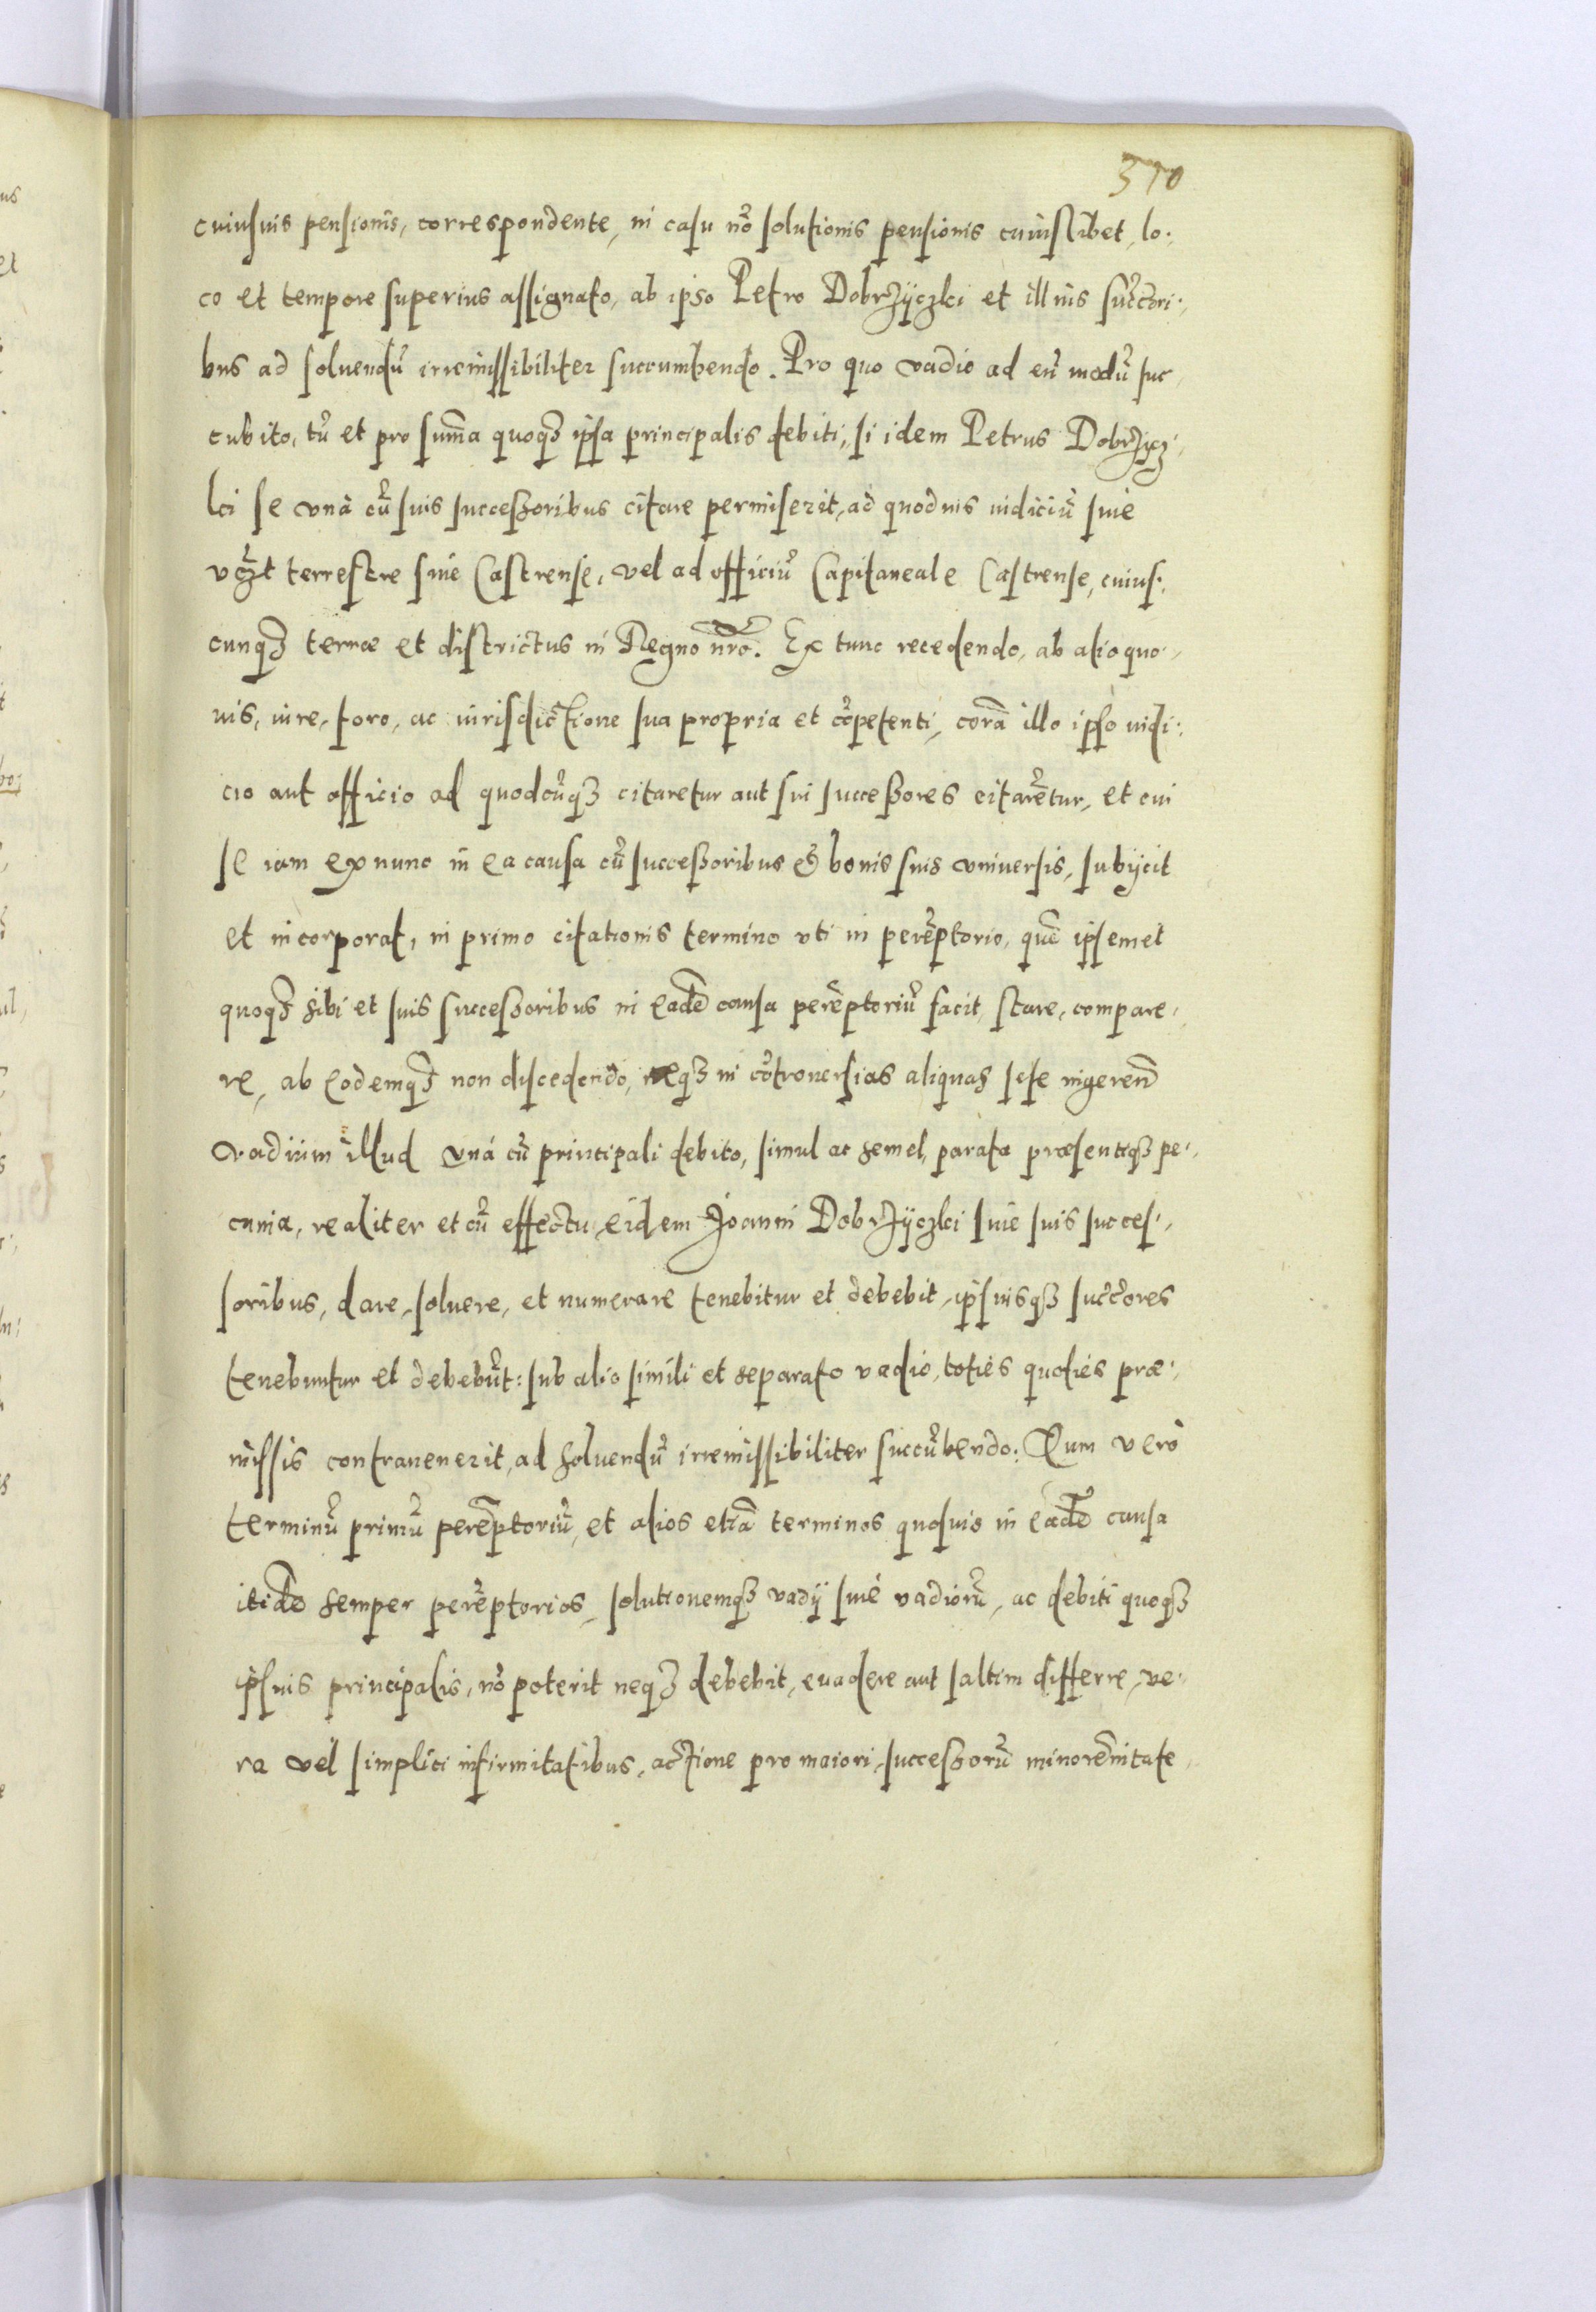 310
cuiusuis pensionis, correspondente, in casu nō solutionis pensionis cuiuslibet, lo:
co et tempore superius assignato, ab ipso Petro Dobrzyczki et illius succōri:
bus ad soluendū irremissibiliter succumbendo. Pro quo vadio ad eū modū suc
cubito, tū et pro summa quoqȝ ipsa principalis debiti, si idem Petrus Dobrzycz:
ki se vnà cū suis successoribus citare permiserit, ad quoduis iudiciū siue
vczt terrestre siue Castrense, vel ad officiū Capitaneale Castrense, cuius:
cunqȝ terræ et districtus in Regno nrō. Ex tunc recedendo, ab alio quo:
uis, iure, foro, ac iurisdictione sua propria et cōpetenti, corā illo ipso iudi:
cio aut officio ad quodcūqȝ citaretur aut sui successores citarētur, et cui
se iam ex nunc in ea causa cū successoribus & bonis suis vniuersis, subijcit
et incorporat, in primo citationis termino vti in perēptorio, quē ipsemet
quoqȝ sibi et suis successoribus in eadē causa perēptoriū facit, stare, compare:
re, ab eodemqȝ non discedendo, neqȝ in cōtrouersias aliquas sese ingerend̄
vadium illud vnà cū principali debito, simul ac semel, parata præsentiqȝ pe:
cunia, realiter et cū effectu, eidem Joanni Dobrzyczki siue suis succes:
soribus, dare, soluere, et numerare tenebitur et debebit, ipsiusqȝ succōres
tenebuntur et debebūt: sub alio simili et separato vadio, toties quoties præ:
missis contrauenerit, ad soluendū irremissibiliter succūbendo. Quem verò
terminū primū perēptoriū, et alios etiā terminos quosuis in eadē causa
itidē semper perēptorios, solutionemqȝ vadij siuè vadiorū, ac debiti quoqȝ
ipsius principalis, nō poterit neqȝ debebit, euadere aut saltim differre, ve:
ra vel simplici infirmitatibus, actione pro maiori, successorū minorēnitate